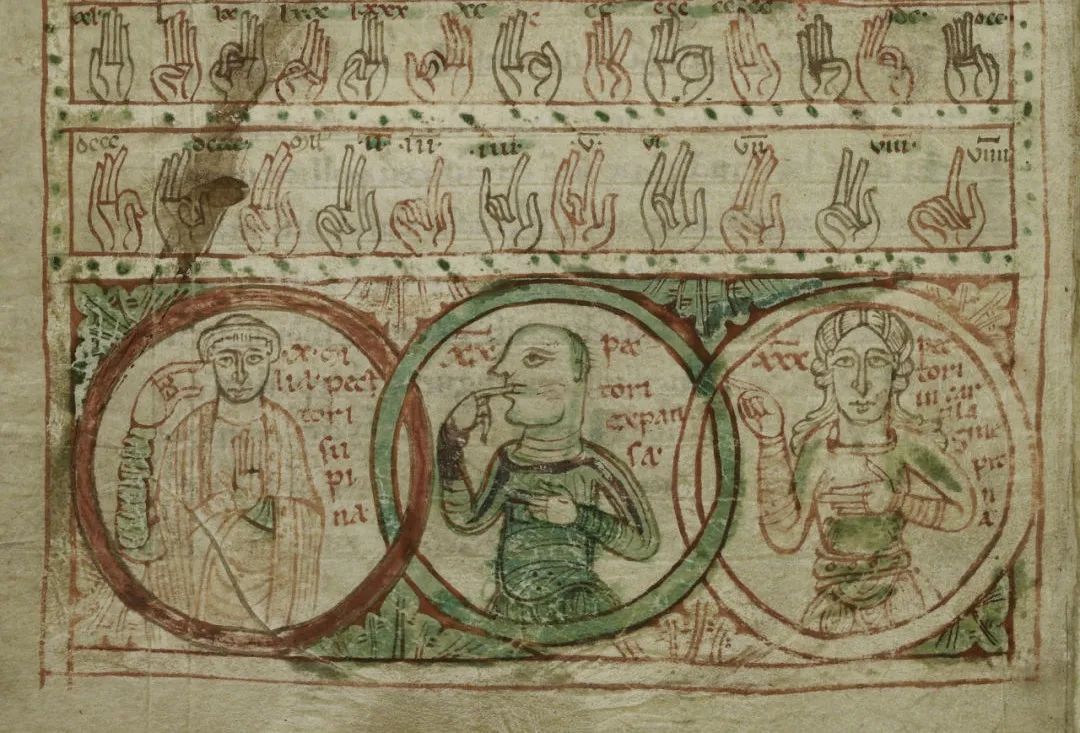 lx lxxx xc c cc ccc cccc dc· dcc·
dccc dcccc ·II· ·III· ·IIII· ·V· VI VII VIII· VIIII
·x· mi
lia pect
tori
su
pi
na
xx pec
tori
expan
sa
xxx pec
tori
in car
tila
gine